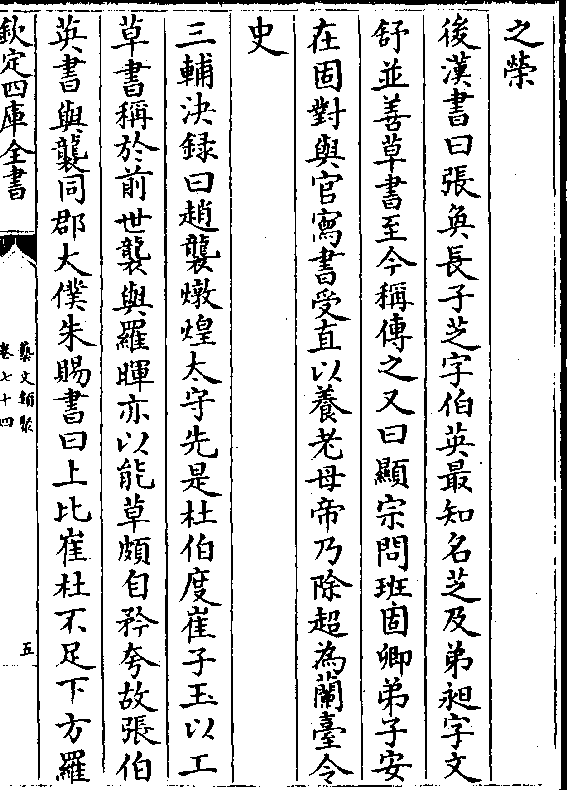 之榮
後漢書曰張奐長子芝字伯英最知名芝及弟昶字文
舒並善草書至今稱傳之又曰顯宗問班固卿弟子安
在固對與官寫書受直以養老母帝乃除超為蘭臺令
史
三輔決録曰趙襲燉煌太守先是杜伯度崔子玉以工
草書稱於前世襲與羅暉亦以能草頗自矜夸故張伯
英書與襲同郡大僕朱賜書曰上比崔杜不足下方羅
欽定四庫全書
藝文類聚
卷七十四
五